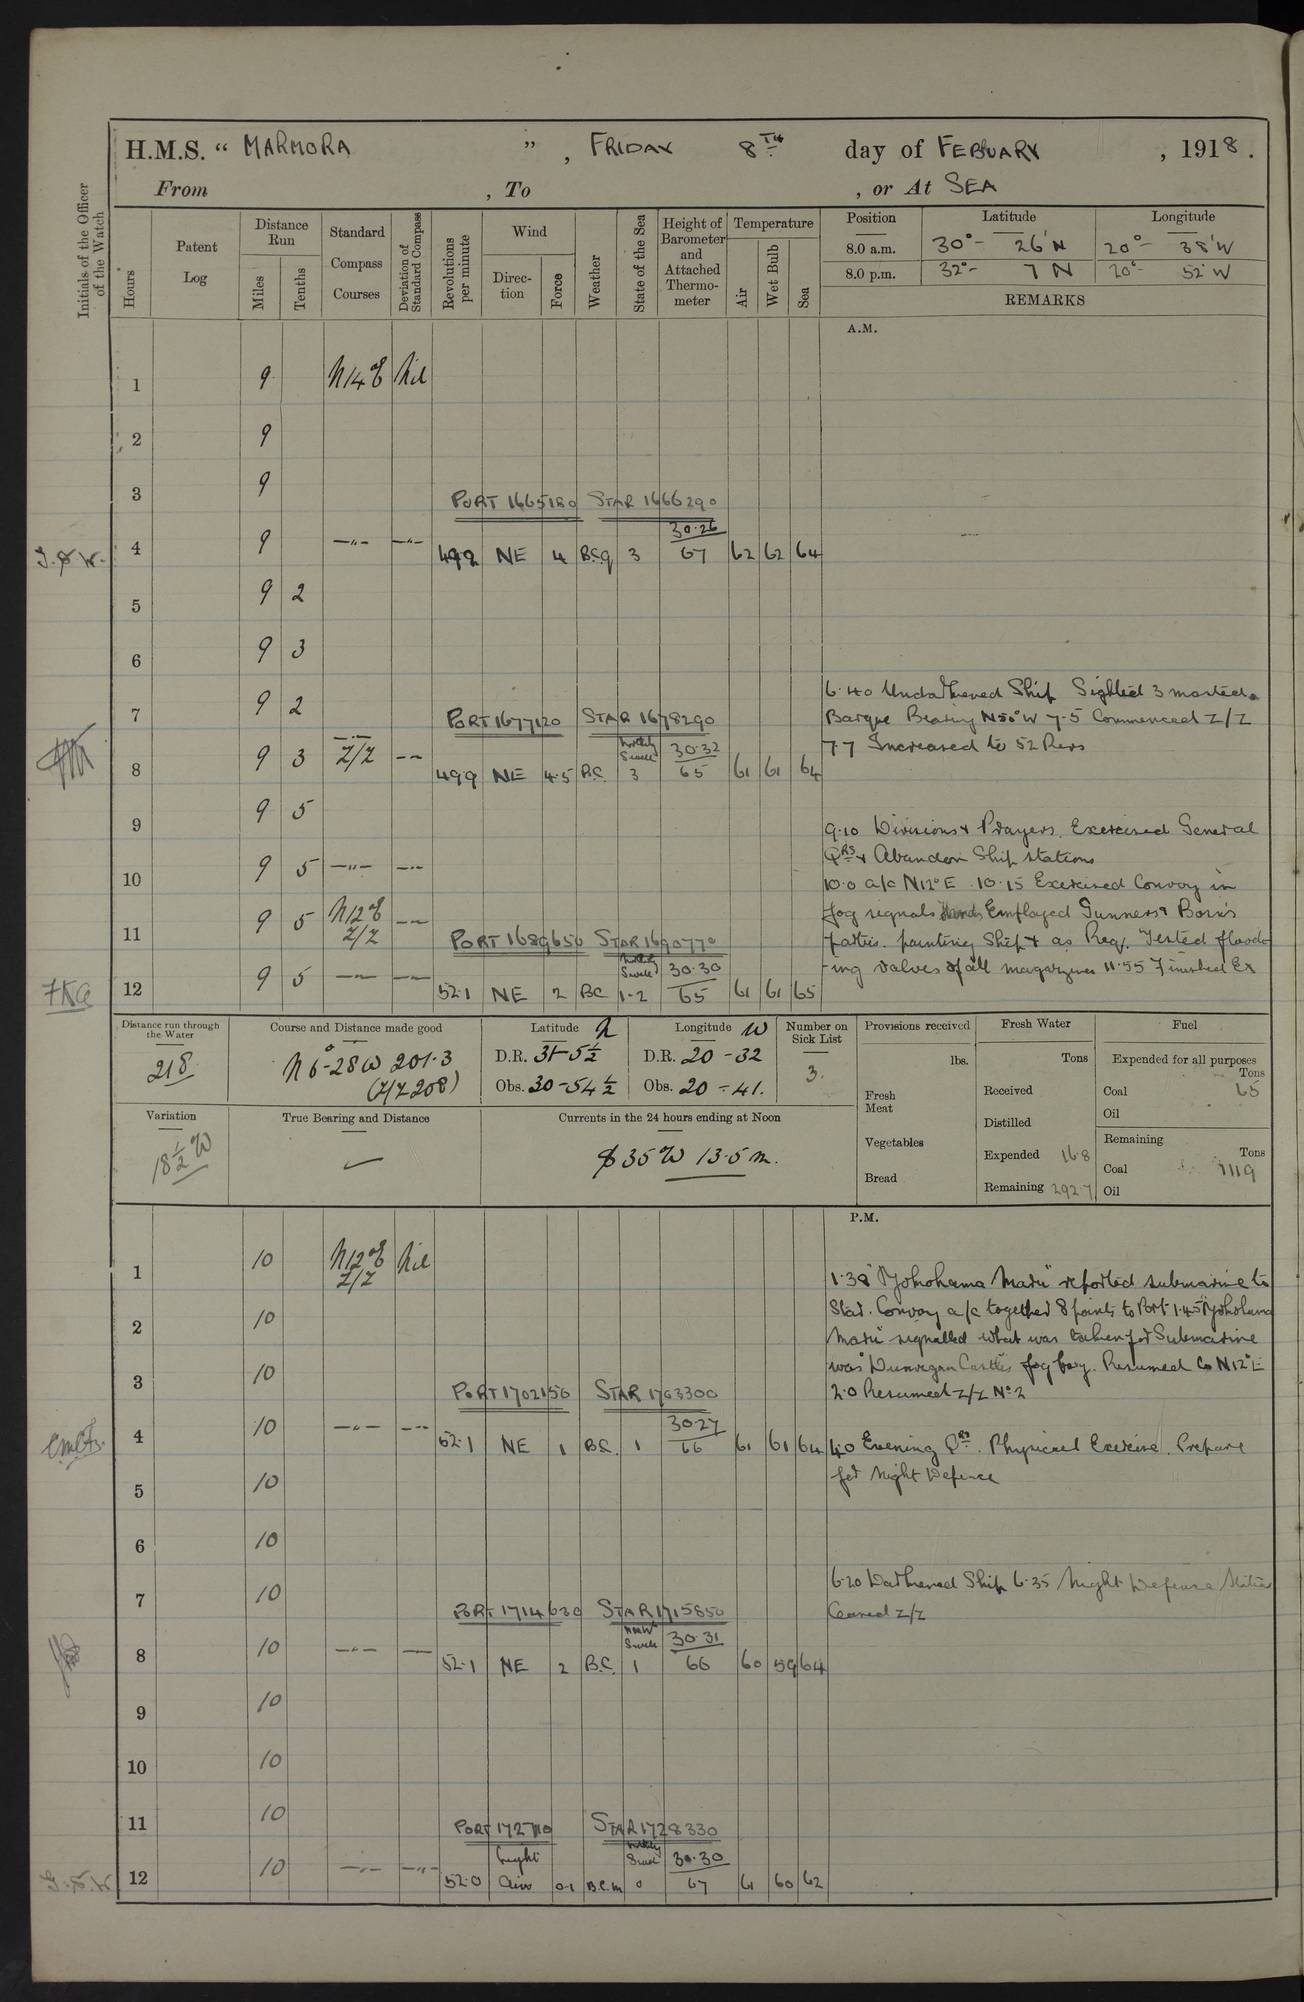 H.M.S. “ MARMORA ” , FRIDAY 8TH day of FEBUARY , 1918 .
From , To , or At SEA
Initials of the Officer of the Watch
Hours
Patent Log
Distance Run
Miles
Tenths
Standard Compass Courses
Deviation of Standard Compass
Revolutions per minute
Wind
Direction
Force
Weather
State of the Sea
Height of Barometer and Attached Thermometer
Temperature
Air
Wet Bulb
Sea
Position Latitude Longitude
8.0 a.m. 30°- 26'N 20°- 38'W
8.0 p.m. 32°- 7 N 20°- 52'W
REMARKS
A.M.
1 9 N14°E Nil
2 9
3 9
PORT 1665180 STAR 1666290
4 9 —"— —"— 49.2 NE 4 B.C.q 3 30.26 67 62 62 64
5 9 2
6 9 3
6.40 Undarkened Ship Sighted 3 masted
7 9 2
Barque Bearing N50°W 7.5 Commenced Z/Z
PORT 1677120 STAR 1678290
7.7 Increased to 52 Revs
8 9 3 Z/Z — 49.9 NE 4.5 B.C. Northly Swell 3 30.32 65 61 61 64
9 9 5
9.10 Divisions & Prayers. Exercised General
Qrs & Abandon Ship stations
10 9 5 —"— —"—
10.0 a/c N12°E 10.15 Exercised Convoy in
fog signals Hands Employed Gunners & Bosns
11 9 5 N12°E Z/Z —
parties. painting Ship & as Req. Tested flood-
PORT 1689650 STAR 1690770
-ing valves of all magazines 11.55 Finished Ex
12 9 5 — — 52.1 NE 2 BC Northly Swell 1-2 30.30 65 61 61 65
Distance run through the Water
218
Course and Distance made good
N 6°-28 W 201.3
(Z/Z 208)
Latitude N
D.R. 31-5½
Obs. 30-54½
Longitude W
D.R. 20-32
Obs. 20-41.
Number on Sick List
3.
Provisions received
lbs.
Fresh Meat
Vegetables
Bread
Fresh Water
Tons
Received
Distilled
Expended 168
Remaining 2927
Fuel
Expended for all purposes
Tons
Coal 65
Oil
Remaining
Tons
Coal 1119
Oil
Variation
18½ W
True Bearing and Distance
—
Currents in the 24 hours ending at Noon
S 35 W 13.5 m.
P.M.
1 10 N12°E Z/Z Nil
1.38 "Yokohama Maru" reported submarine to
Star. Convoy a/c together 8 points to Port 1.45 "Yokohama
2 10
Maru" signalled what was taken for Submarine
was "Dunvegan Castle's" fog buoy. Resumed Co N12°E
3 10
2.0 Resumed Z/Z No 2
PORT 1702150 STAR 1703300
4 10 —"— —"— 52.1 NE 1 B.C. 1 30.27 66 61 61 64
4.0 Evening Qrs. Physical Exercise. Prepare
for Night Defence
5 10
6 10
6.20 Darkened Ship 6.35 Night Defence Stations
7 10
Ceased Z/Z
PORT 1714630 STAR 1715850
8 10 —"— — 52.1 NE 2 B.C. Swell 1 30.31 66 60 59 64
9 10
10 10
11 10
PORT 1727110 STAR 1728330
12 10 —"— —"— 52.0 Light Airs 0-1 B.C.m Northly Swell 0 30.30 67 61 60 62